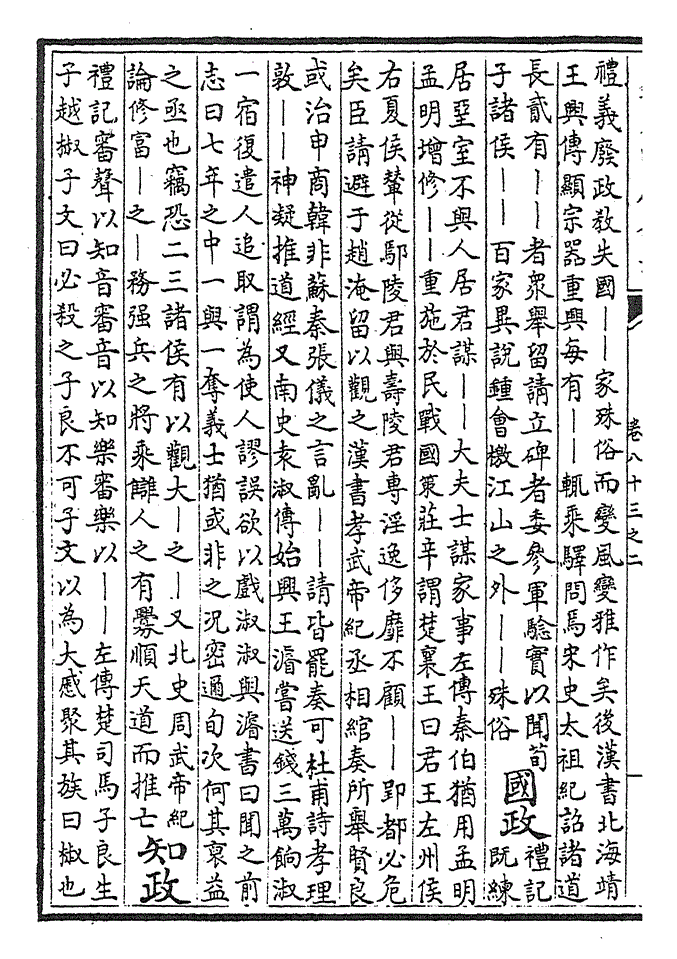 卷八十三之二
一
禮義廢政教失國——家殊俗而變風變雅作矣後漢書北海靖
王興傳顯宗器重興每有——輒乘驛問焉宋史太祖紀詔諸道
長貳有——者衆舉留請立碑者委參軍驗實以聞荀
子諸侯——百家異說鍾會檄江山之外——殊俗
國政
禮記
既練
居堊室不與人居君謀——大夫士謀家事左傳秦伯猶用孟明
孟明增修——重施於民戰國策莊辛謂楚襄王曰君王左州侯
右夏侯輦從鄢陵君與壽陵君專淫逸侈靡不顧——郢都必危
矣臣請避于趙淹留以觀之漢書孝武帝紀丞相綰奏所舉賢良
或治申商韓非蘇秦張儀之言亂——請皆罷奏可杜甫詩孝理
敦——神凝推道經又南史袁淑傳始興王濬嘗送錢三萬餉淑
一宿復遣人追取謂為使人謬誤欲以戲淑淑與濬書曰聞之前
志曰七年之中一與一奪義士猶或非之況密邇旬次何其裒益
之亟也竊恐二三諸侯有以觀大—之—又北史周武帝紀
論修富—之—務强兵之將乘讎人之有釁順天道而推亡
知政
禮記審聲以知音審音以知樂審樂以——左傳楚司馬子良生
子越椒子文曰必殺之子良不可子文以為大慼聚其族曰椒也